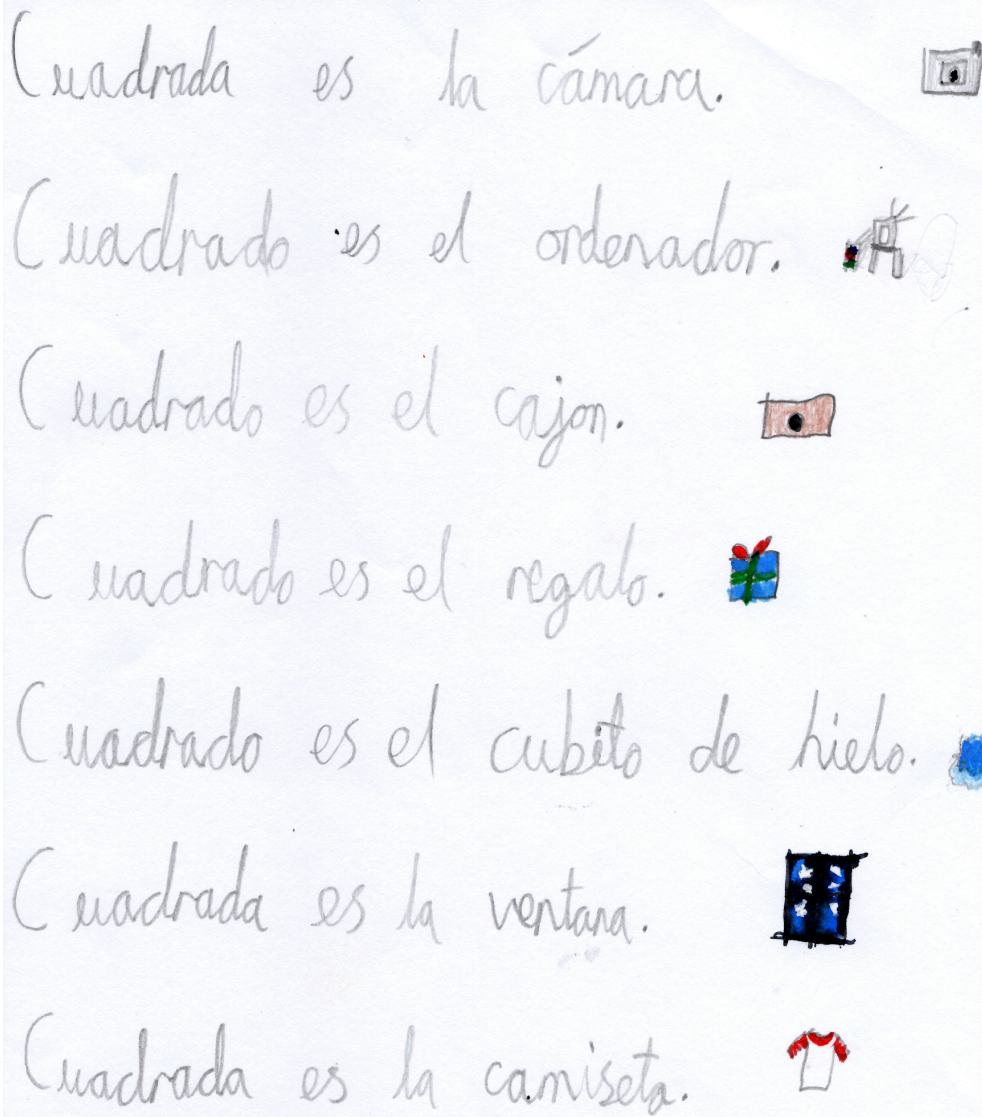 Cuadrada es la cámara.
Cuadrado es el ordenador.
Cuadrado es el cajon.
Cuadrado es el regalo.
Cuadrado es el cubito de hielo.
Cuadrada es la ventana.
Cuadrada es la camiseta.